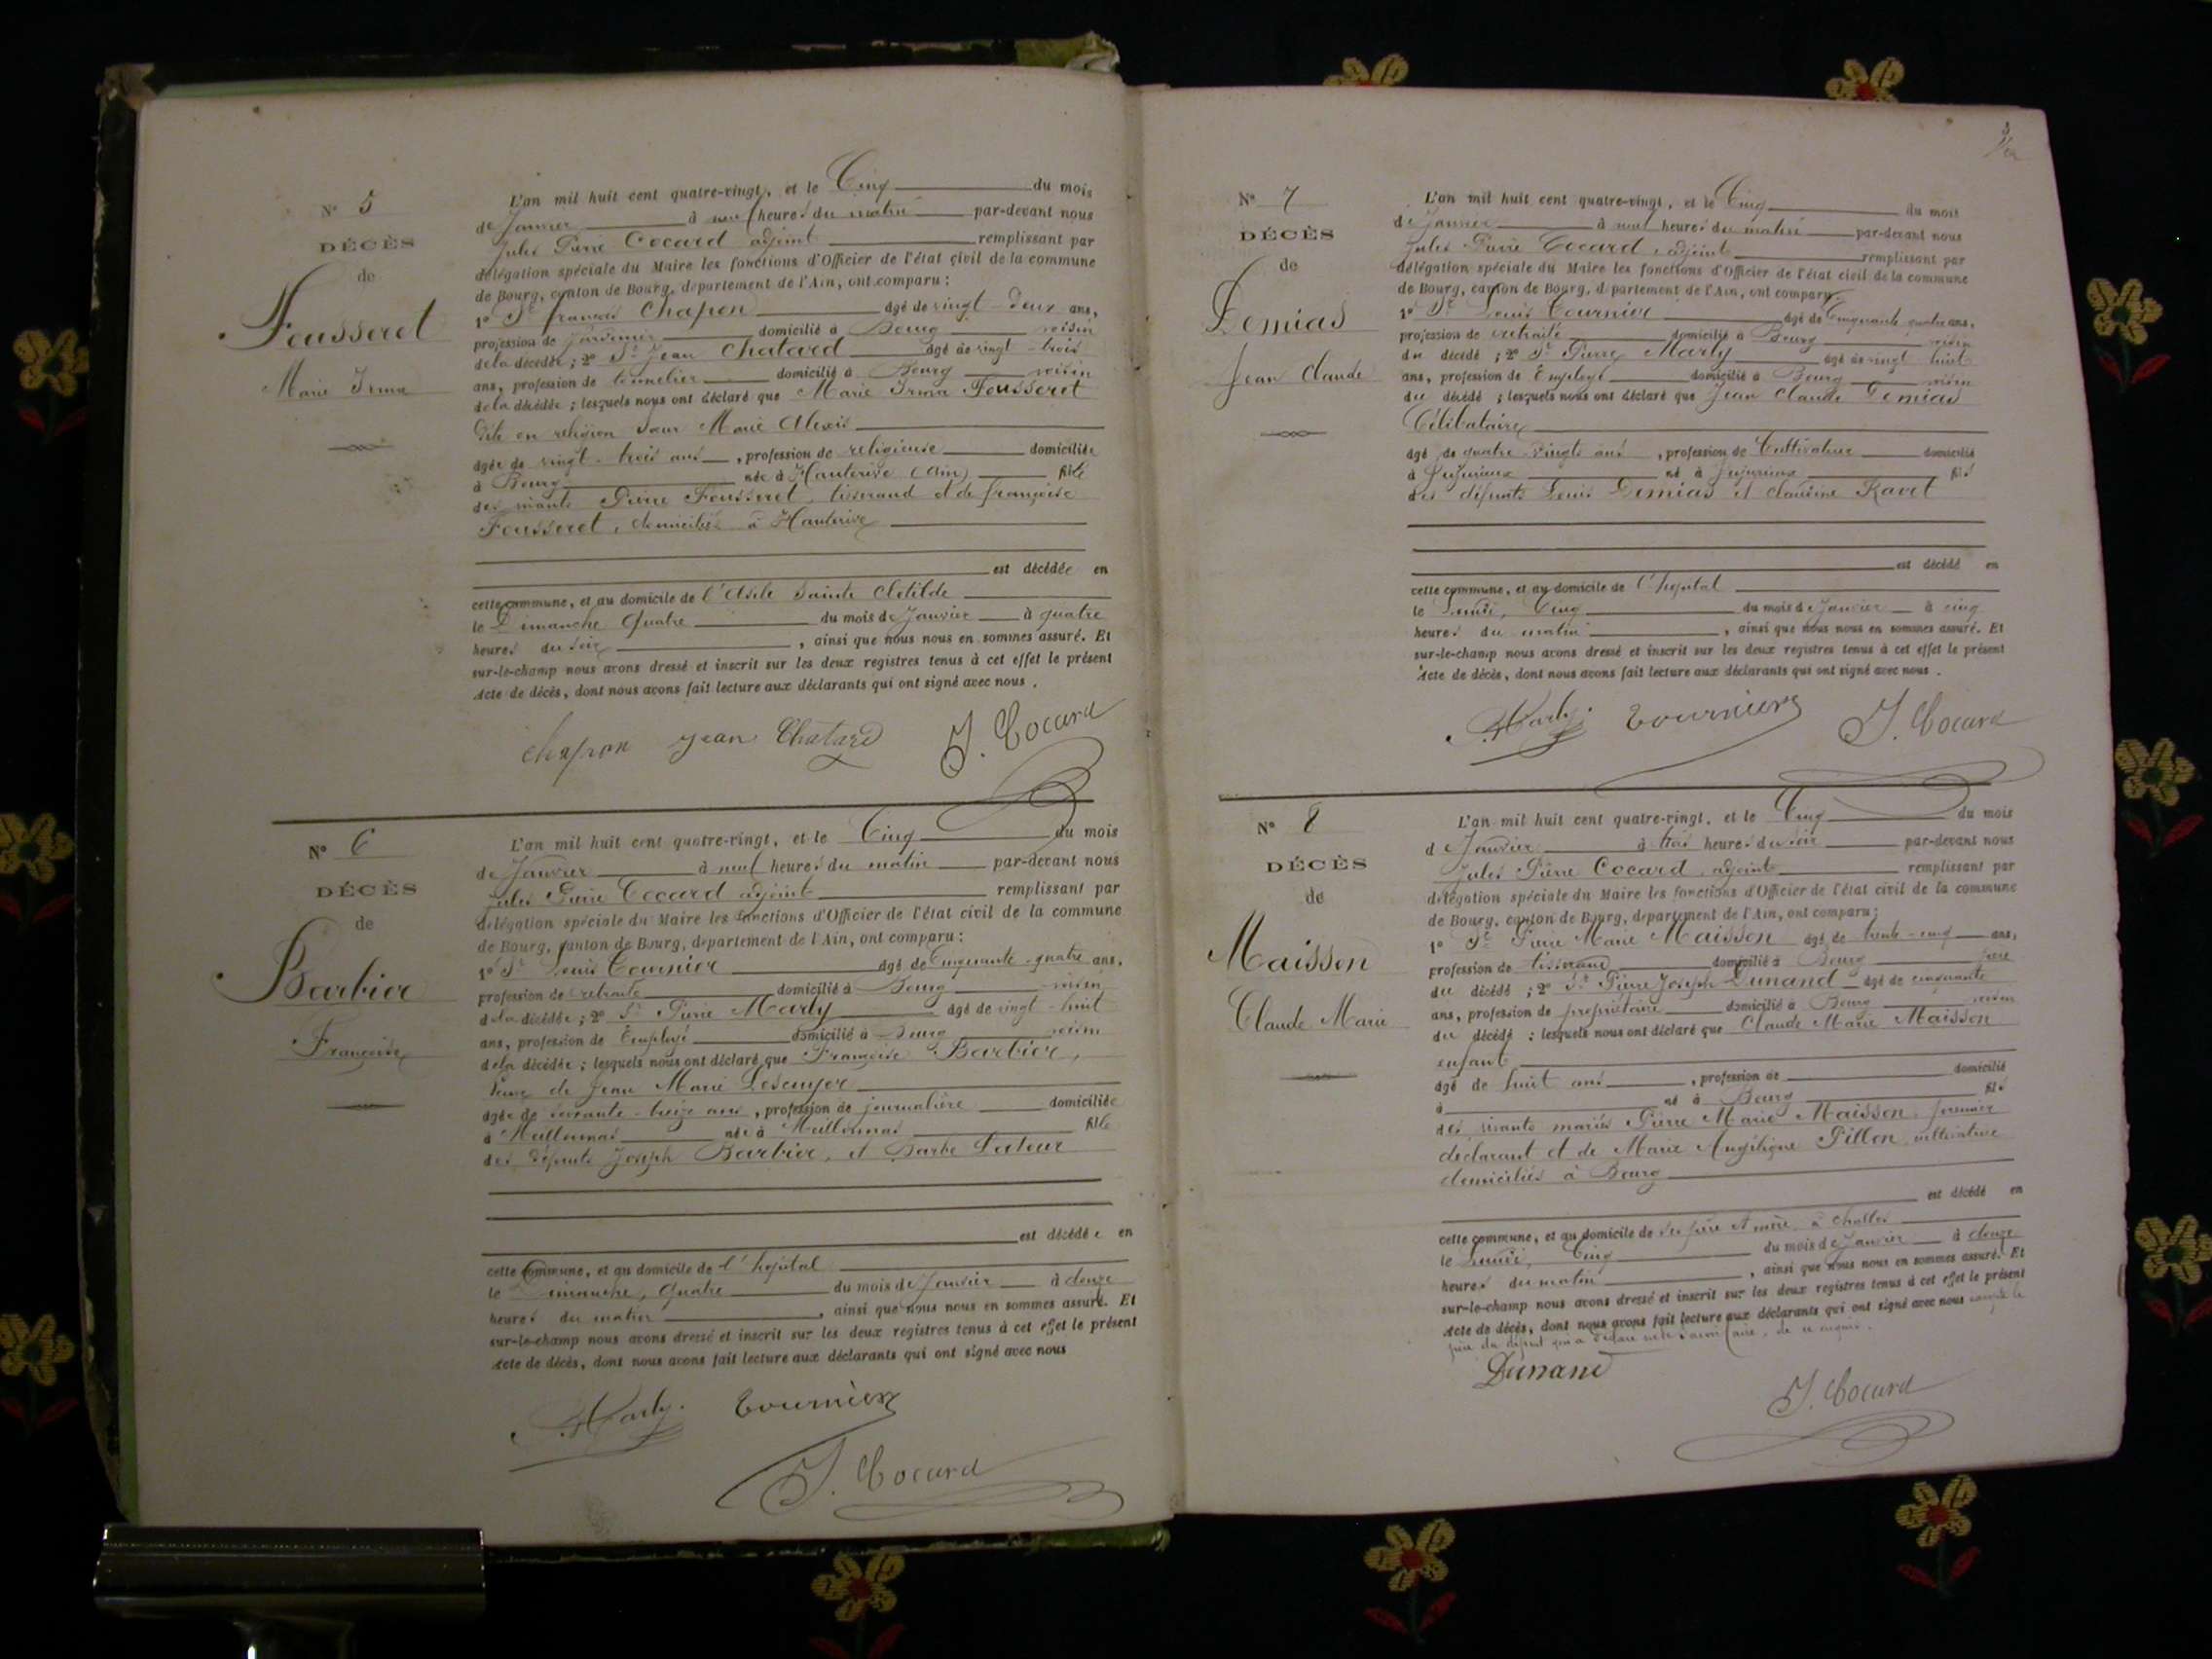 N° 5
DÉCÈS
de
Fousseret
Marie Irma
L'an mil huit cent quatre-vingt, et le Cinq du mois
de Janvier à neuf heures du matin par-devant nous
Jules Pierre Cocard adjoint remplissant par
délégation spéciale du Maire les fonctions d'Officier de l'état civil de la commune
de Bourg, canton de Bourg, département de l'Ain, ont comparu :
1° Sr françois Chapon âgé de vingt-deux ans,
profession de jardinier domicilié à Bourg voisin
de la décédée ; 2° Sr Jean Chatard âgé de vingt-trois
ans, profession de tonnelier domicilié à Bourg voisin
de la décédée ; lesquels nous ont déclaré que Marie Irma Fousseret
dite en religion Sœur Marie Alexis
âgée de vingt-trois ans, profession de religieuse domiciliée
à Bourg née à Hauterive (Ain) fille
des vivants Pierre Fousseret, tisserand et de françoise
Fousseret, domiciliés à Hauterive
est décédée en
cette commune, et au domicile de l'Asile Sainte Clotilde
le Dimanche quatre du mois de Janvier à quatre
heures du soir, ainsi que nous nous en sommes assuré. Et
sur-le-champ nous avons dressé et inscrit sur les deux registres tenus à cet effet le présent
Acte de décès, dont nous avons fait lecture aux déclarants qui ont signé avec nous.
Chapon Jean Chatard J. Cocard
N° 6
DÉCÈS
de
Barbier
Françoise
L'an mil huit cent quatre-vingt, et le Cinq du mois
de Janvier à neuf heures du matin par-devant nous
Jules Pierre Cocard adjoint remplissant par
délégation spéciale du Maire les fonctions d'Officier de l'état civil de la commune
de Bourg, canton de Bourg, département de l'Ain, ont comparu :
1° Sr Louis Tournier âgé de Cinquante-quatre ans,
profession de retraité domicilié à Bourg voisin
de la décédée ; 2° Sr Pierre Marly âgé de vingt-huit
ans, profession de Employé domicilié à Bourg voisin
de la décédée ; lesquels nous ont déclaré que Françoise Barbier,
Veuve de Jean Marie Lescuyer
âgée de soixante-treize ans, profession de journalière domiciliée
à Meillonnas née à Meillonnas fille
des défunts Joseph Barbier, et Barbe Latour
est décédée en
cette Commune, et au domicile de l'hôpital
le Dimanche, quatre du mois de Janvier à douze
heures du matin, ainsi que nous nous en sommes assuré. Et
sur-le-champ nous avons dressé et inscrit sur les deux registres tenus à cet effet le présent
Acte de décès, dont nous avons fait lecture aux déclarants qui ont signé avec nous
Marly. Tournier
J. Cocard
N° 7
DÉCÈS
de
Demias
Jean Claude
L'an mil huit cent quatre-vingt, et le Cinq du mois
de Janvier à neuf heures du matin par-devant nous
Jules Pierre Cocard, adjoint remplissant par
délégation spéciale du Maire les fonctions d'Officier de l'état civil de la commune
de Bourg, canton de Bourg, département de l'Ain, ont comparu :
1° Sr Louis Tournier âgé de Cinquante quatre ans,
profession de retraité domicilié à Bourg voisin
du décédé ; 2° Sr Pierre Marly âgé de vingt-huit
ans, profession de Employé domicilié à Bourg voisin
du décédé ; lesquels nous ont déclaré que Jean Claude Demias
Célibataire
âgé de quatre-vingts ans, profession de Cultivateur domicilié
à Jujurieux né à Jujurieux fils
des défunts Louis Demias et Claudine Ravet
est décédé en
cette commune, et au domicile de l'hôpital
le Lundi, Cinq du mois de Janvier à cinq
heures du matin, ainsi que nous nous en sommes assuré. Et
sur-le-champ nous avons dressé et inscrit sur les deux registres tenus à cet effet le présent
Acte de décès, dont nous avons fait lecture aux déclarants qui ont signé avec nous.
Marly. Tournier J. Cocard
N° 8
DÉCÈS
de
Maisson
Claude Marie
L'an mil huit cent quatre-vingt, et le Cinq du mois
de Janvier à trois heures du soir par-devant nous
Jules Pierre Cocard, adjoint remplissant par
délégation spéciale du Maire les fonctions d'Officier de l'état civil de la commune
de Bourg, canton de Bourg, département de l'Ain, ont comparu :
1° Sr Pierre Marie Maisson âgé de trente-cinq ans,
profession de domicilié à Bourg père
du décédé ; 2° Sr Pierre Joseph Dunand âgé de cinquante
ans, profession de propriétaire domicilié à Bourg voisin
du décédé : lesquels nous ont déclaré que Claude Marie Maisson
enfant
âgé de huit ans, profession de domicilié
à né à Bourg fils
des vivants mariés Pierre Marie Maisson, fermier
déclarant et de Marie Angélique Pillon, cultivatrice
domiciliés à Bourg
est décédé en
cette commune, et au domicile de ses père et mère, à Challes
le Lundi, Cinq du mois de Janvier à douze
heures du matin, ainsi que nous nous en sommes assuré. Et
sur-le-champ nous avons dressé et inscrit sur les deux registres tenus à cet effet le présent
Acte de décès, dont nous avons fait lecture aux déclarants qui ont signé avec nous excepté le
père du défunt qui a déclaré ne le savoir faire, de ce enquis.
Dunand
J. Cocard